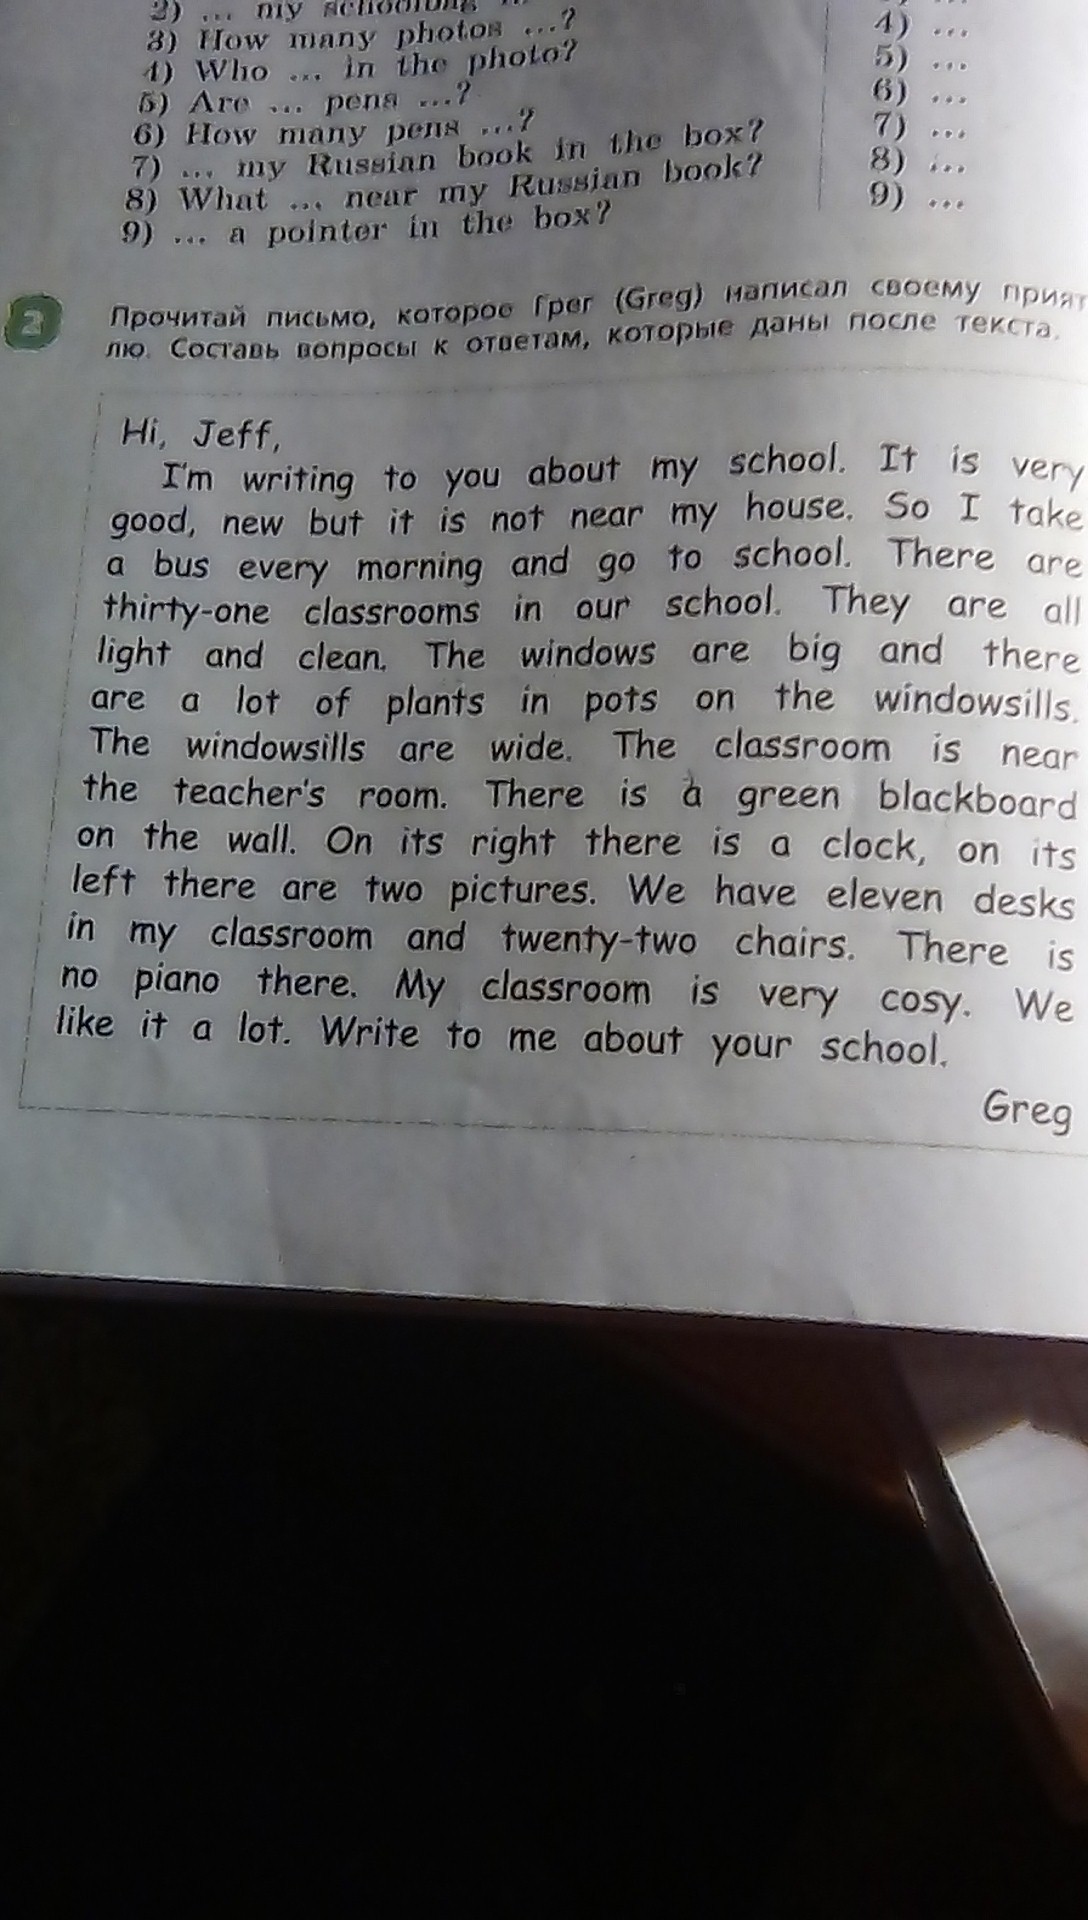 2) ... my
3) How many photos ...?
4) Who ... in the photo?
5) Are ... pens ...?
6) How many pens ...?
7) ... my Russian book in the box?
8) What ... near my Russian book?
9) ... a pointer in the box?
4) ...
5) ...
6) ...
7) ...
8) ...
9) ...
2 Прочитай письмо, которое Грег (Greg) написал своему прият
лю. Составь вопросы к ответам, которые даны после текста.
Hi, Jeff,
I'm writing to you about my school. It is very
good, new but it is not near my house. So I take
a bus every morning and go to school. There are
thirty-one classrooms in our school. They are all
light and clean. The windows are big and there
are a lot of plants in pots on the windowsills.
The windowsills are wide. The classroom is near
the teacher's room. There is a green blackboard
on the wall. On its right there is a clock, on its
left there are two pictures. We have eleven desks
in my classroom and twenty-two chairs. There is
no piano there. My classroom is very cosy. We
like it a lot. Write to me about your school.
Greg